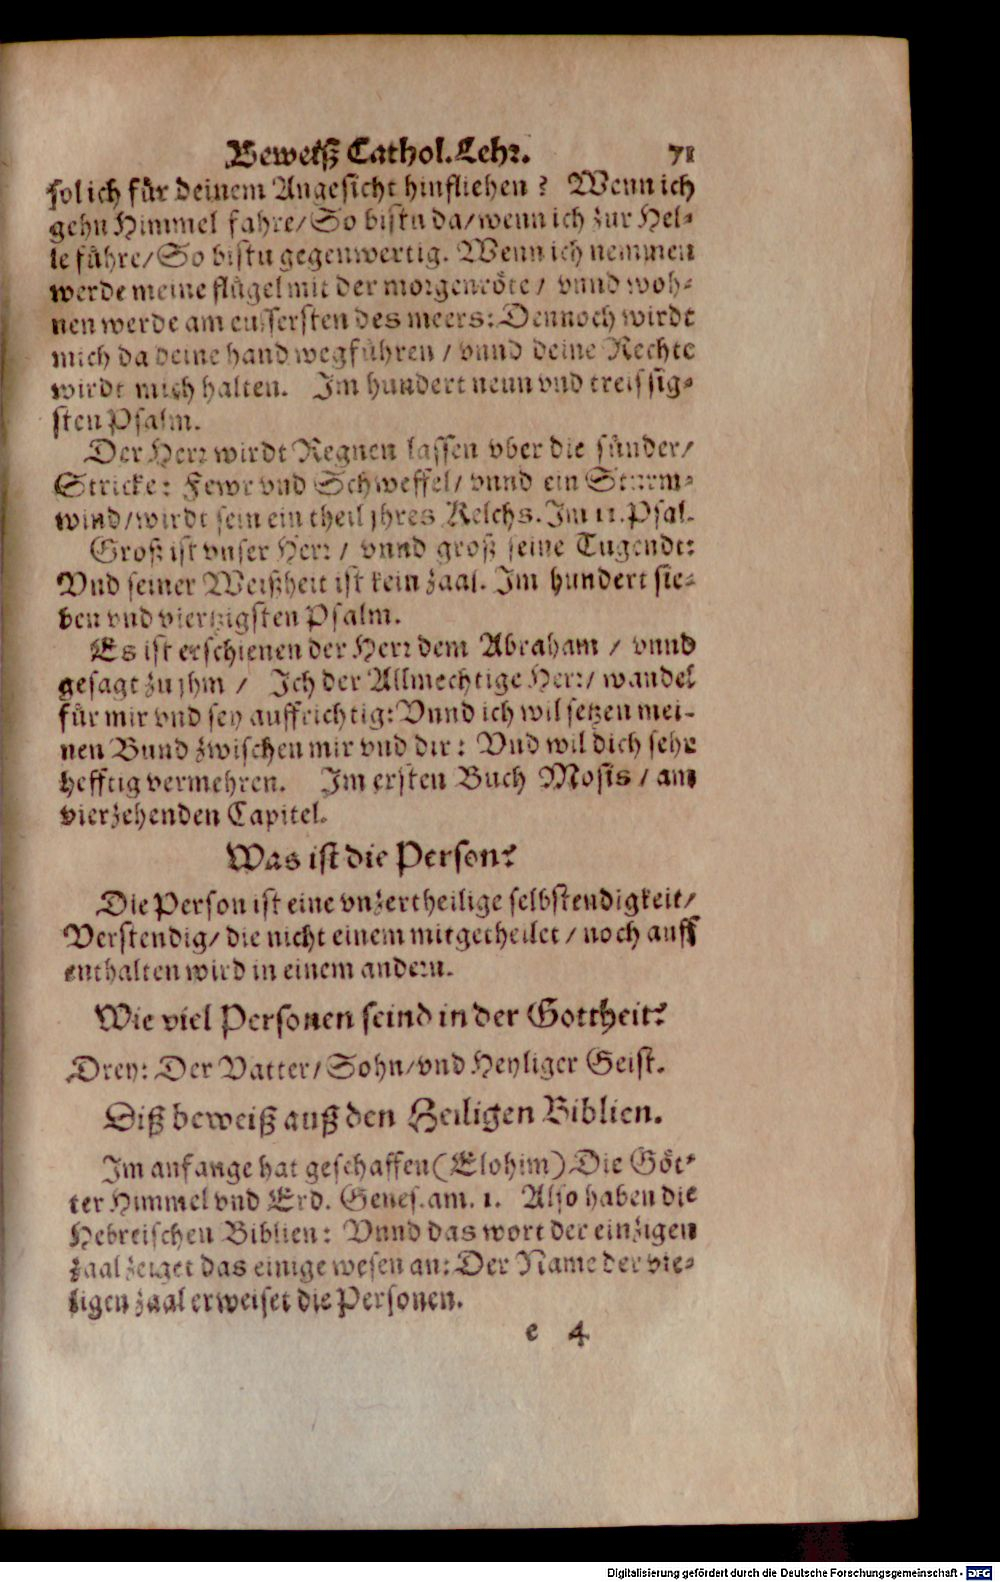 Beweiß Cathol. Lehr. 71
sol ich für deinem Angesicht hinfliehen? Wenn ich
gehn Himmel fahre/ So bistu da/ wenn ich zur Hel-
le führe/ So bistu gegenwertig. Wenn ich nemmen
werde meine flügel mit der morgenröte/ vnnd woh-
nen werde am eussersten des meers: Dennoch wirdt
mich da deine hand wegführen/ vnnd deine Rechte
wirdt mich halten. Im hundert neun vnd treissig-
sten Psalm.
Der Herr wirdt Regnen lassen vber die sünder/
Stricke: Fewr vnd Schweffel/ vnnd ein Sturm-
wind/ wirdt sein ein theil jhres Kelchs. Im 11. Psal.
Groß ist vnser Herr/ vnnd groß seine Tugendt:
Vnd seiner Weißheit ist kein zaal. Im hundert sie-
ben vnd viertzigsten Psalm.
Es ist erschienen der Herr dem Abraham/ vnnd
gesagt zu jhm/ Ich der Allmechtige Herr/ wandel
für mir vnd sey auffrichtig: Vnnd ich wil setzen mei-
nen Bund zwischen mir vnd dir: Vnd wil dich sehr
hefftig vermehren. Im ersten Buch Mosis/ am
vierzehenden Capitel.
Was ist die Person?
Die Person ist eine vnzertheilige selbstendigkeit/
Verstendig/ die nicht einem mitgetheilet/ noch auff
enthalten wird in einem andern.
Wie viel Personen seind in der Gottheit?
Drey: Der Vatter/ Sohn/ vnd Heyliger Geist.
Diß beweiß auß den Heiligen Biblien.
Im anfange hat geschaffen (Elohim) Die Göt-
ter Himmel vnd Erd. Genes. am. 1. Also haben die
Hebreischen Biblien: Vnnd das wort der einzigen
zaal zeiget das einige wesen an: Der Name der vie-
ligen zaal erweiset die Personen.
e 4
Digitalisierung gefördert durch die Deutsche Forschungsgemeinschaft - DFG